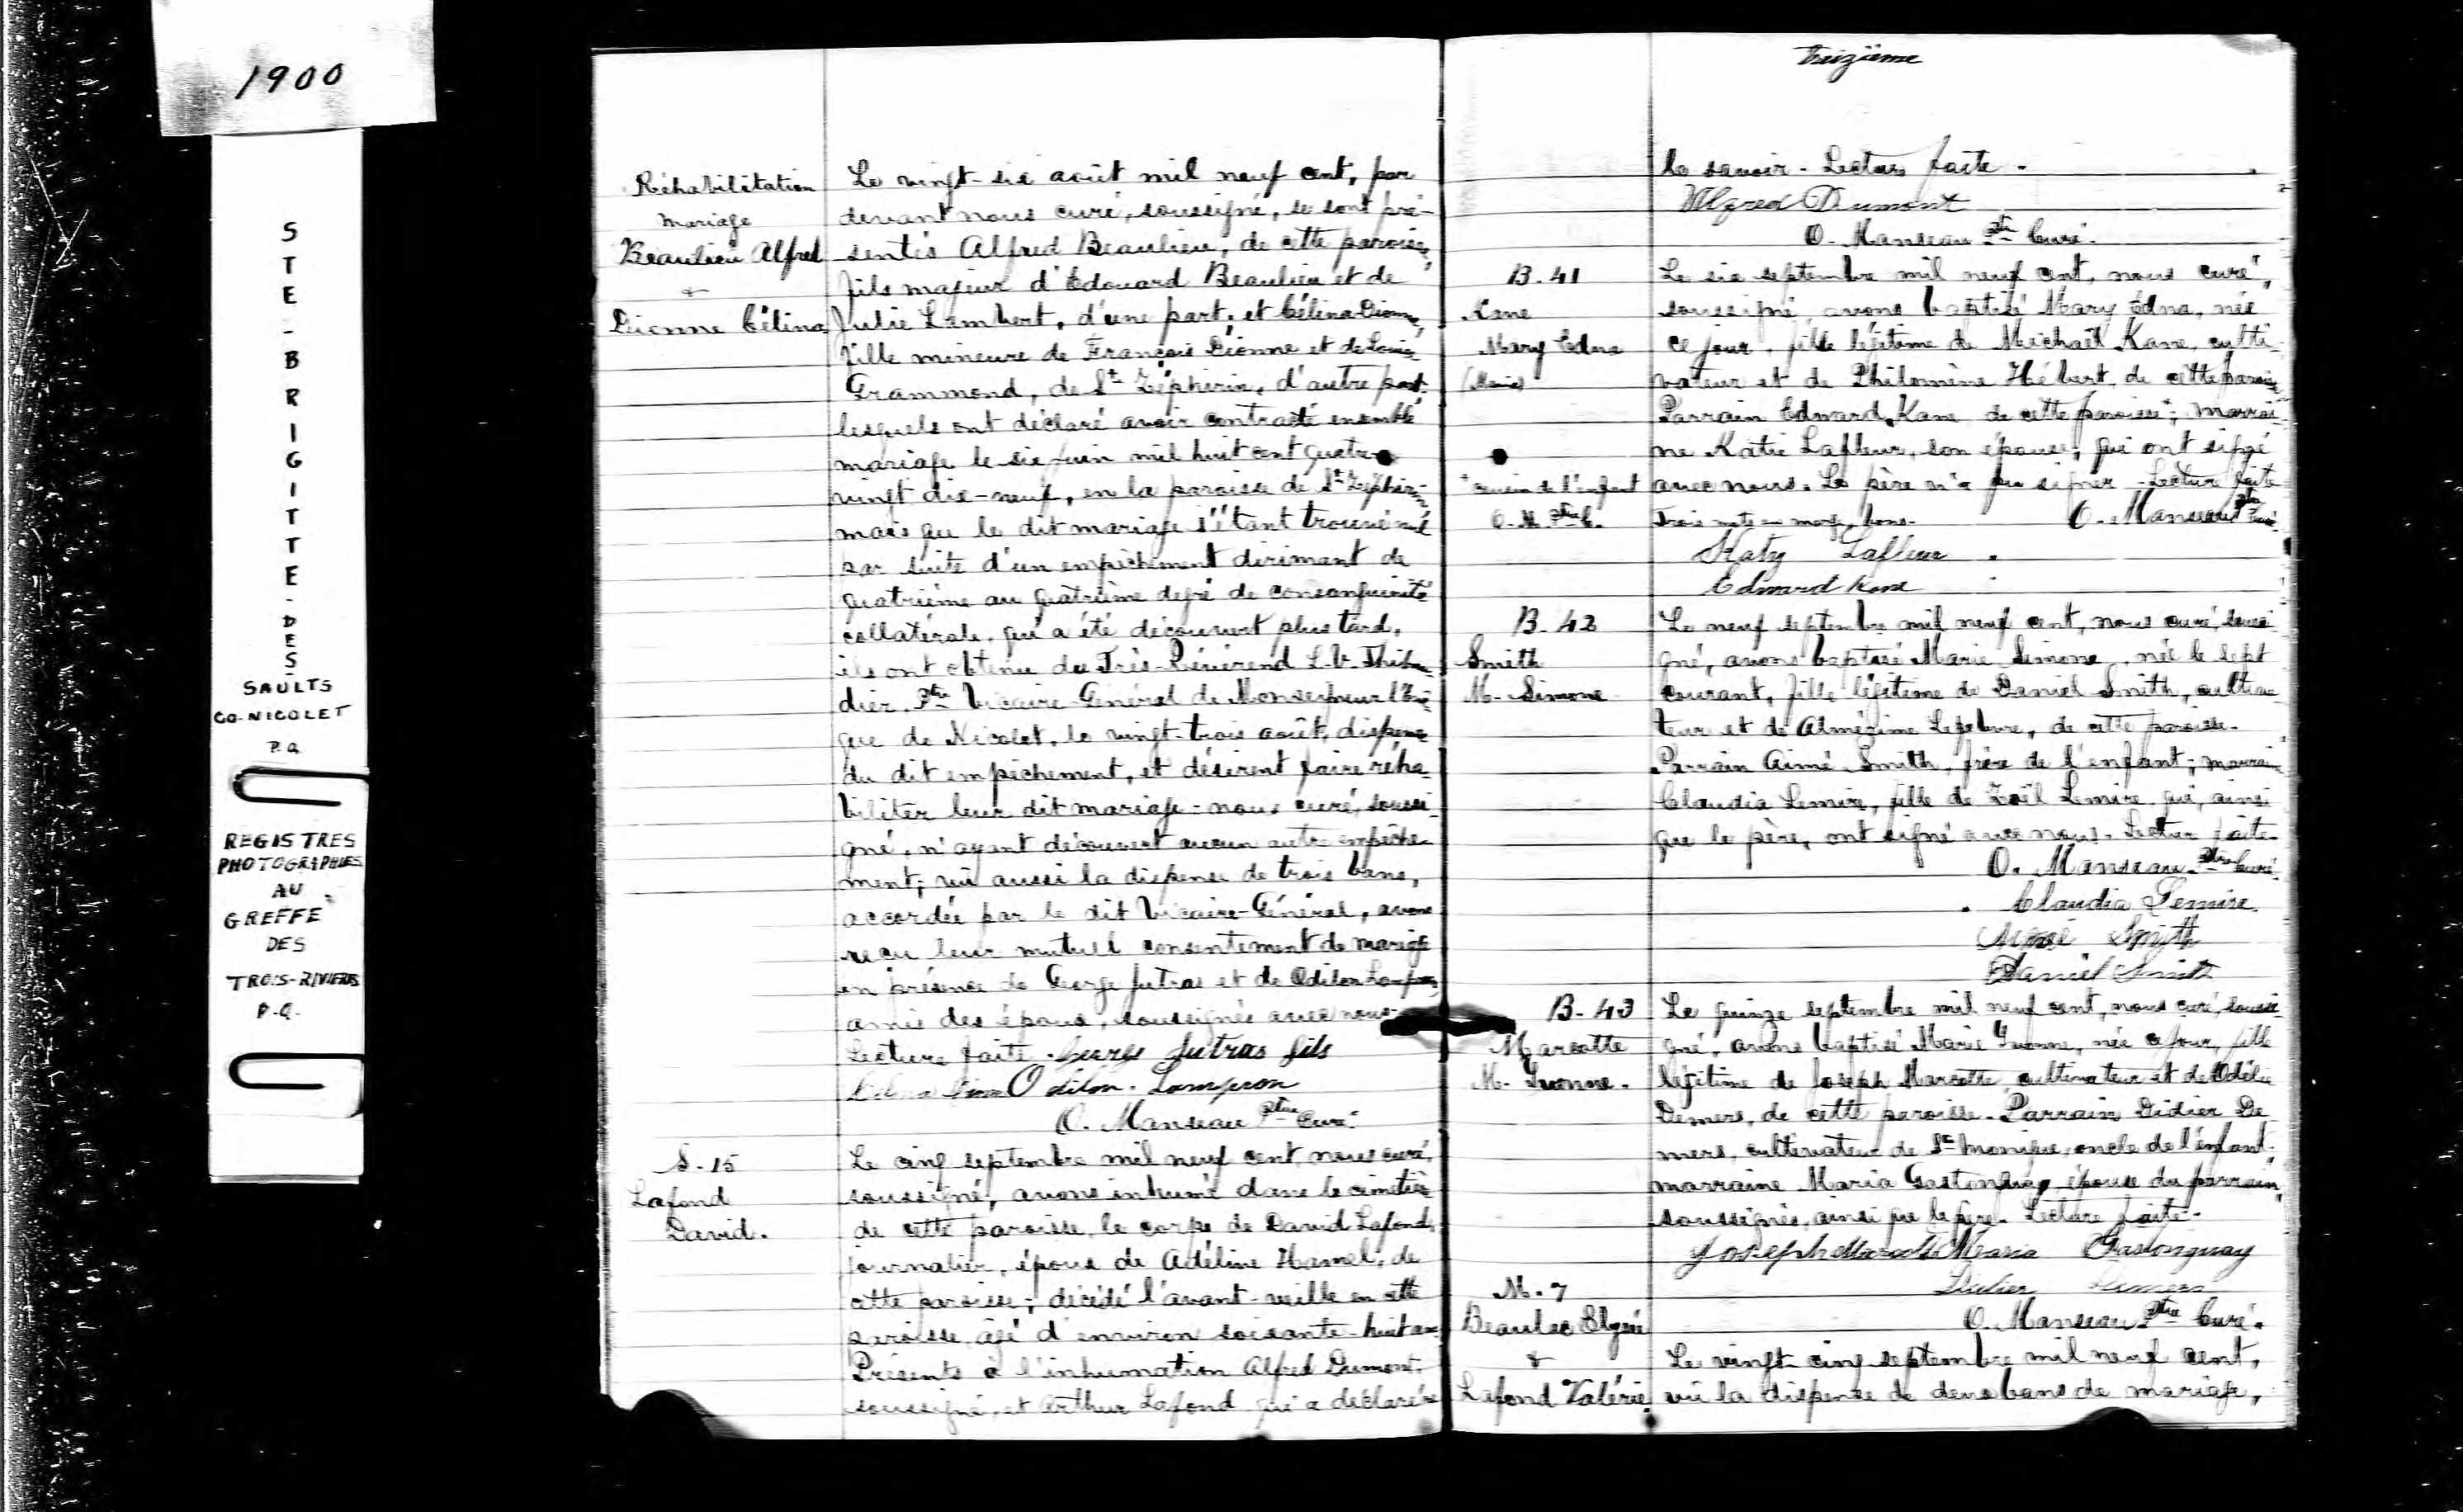 1900
STE-BRIGITTE-DES-
SAULTS
CO-NICOLET
P.Q.
REGISTRES
PHOTOGRAPHIES
AU
GREFFE
DES
TROIS-RIVIERES
P.Q.
Réhabilitation
mariage
Beaulieu Alfred
+
Dionne Célina
Le vingt-six août mil neuf cent, par
devant nous curé, soussigné, se sont pré-
sentés Alfred Beaulieu, de cette paroisse,
fils majeur d'Edouard Beaulieu et de
Julie Lambert, d'une part, et Célina Dionne,
fille mineure de François Dionne et de Louise
Grammond, de St Zéphirin, d'autre part,
lesquels ont déclaré avoir contracté ensemble
mariage le six juin mil huit cent quatre
vingt dix-neuf, en la paroisse de St Zéphirin
mais que le dit mariage s'étant trouvé nul
par suite d'un empêchement dirimant de
quatrième au quatrième degré de consanguinité
collatérale, qui a été découvert plus tard,
ils ont obtenu du Très-Révérend L. V. Thibau
dier, Ptre Vicaire-Général de Monseigneur l'Evê
que de Nicolet, le vingt-trois août, dispense
du dit empêchement, et désirent faire réha
biliter leur dit mariage - nous curé, soussi
gné, n'ayant découvert aucun autre empêche
ment; vu aussi la dispense de trois bans,
accordée par le dit Vicaire-Général, avons
reçu leur mutuel consentement de mariage
en présence de George Jutras et de Odilon Lampron,
amis des époux, soussignés avec nous.
Lecture faite. George Jutras fils
Odilon. Lampron
O. Manseau Ptre Curé
S. 15
Lafond
David.
Le cinq septembre mil neuf cent nous curé,
soussigné, avons inhumé dans le cimetière
de cette paroisse, le corps de David Lafond,
journalier, époux de Adéline Hamel, de
cette paroisse; décédé l'avant-veille en cette
paroisse âgé d'environ soixante-huit ans
Présents à l'inhumation Alfred Dumont
soussigné, et Arthur Lafond qui a déclaré ne
treizième
le savoir - Lecture faite -
Alfred Dumont
O. Manseau Ptre Curé.
B. 41
Kane
Mary Edna
+ cousin de l'enfant
O. M. Ptre C.
Le six septembre mil neuf cent, nous curé,
soussigné, avons baptisé Mary Edna, née
ce jour, fille légitime de Michaël Kane, culti-
vateur et de Philomène Hébert, de cette paroisse
Parrain Edward Kane de cette paroisse +; marrai-
ne Katie Lafleur, son épouse, qui ont signé
avec nous. Le père n'a pu signer - Lecture faite
Trois mots en marge, bons. O. Manseau Ptre Curé
Katy Lafleur
Edward Kane
B. 42
Smith
M. Simone
Le neuf septembre mil neuf cent, nous curé, soussi
gné, avons baptisé Marie Simone, née le sept
courant, fille légitime de Daniel Smith, cultiva
teur et de Almézime Lefebvre, de cette paroisse.
Parrain Aimé Smith, frère de l'enfant; marraine
Claudia Lemire, fille de Zoël Lemire qui, ainsi
que le père, ont signé avec nous. Lecture faite
O. Manseau Ptre Curé
Claudia Lemire.
Aimé Smith
Daniel Smith
B-43
Marcotte
M. Yvonne.
Le quinze septembre mil neuf cent, nous curé, soussi
gné, avons baptisé Marie Yvonne, née ce jour, fille
légitime de Joseph Marcotte, cultivateur et de Odélie
Demers, de cette paroisse. Parrain Didier De
mers, cultivateur de Ste Monique, oncle de l'enfant;
marraine Maria Gastonguay, épouse du parrain,
soussignés, ainsi que le père. Lecture faite.
Joseph Marcotte Maria Gastonguay
Didier Demers
O. Manseau Ptre Curé.
M. 7
Beaulac Elysée
+
Lafond Valérie
Le vingt-cinq septembre mil neuf cent,
vu la dispense de deux bans de mariage,